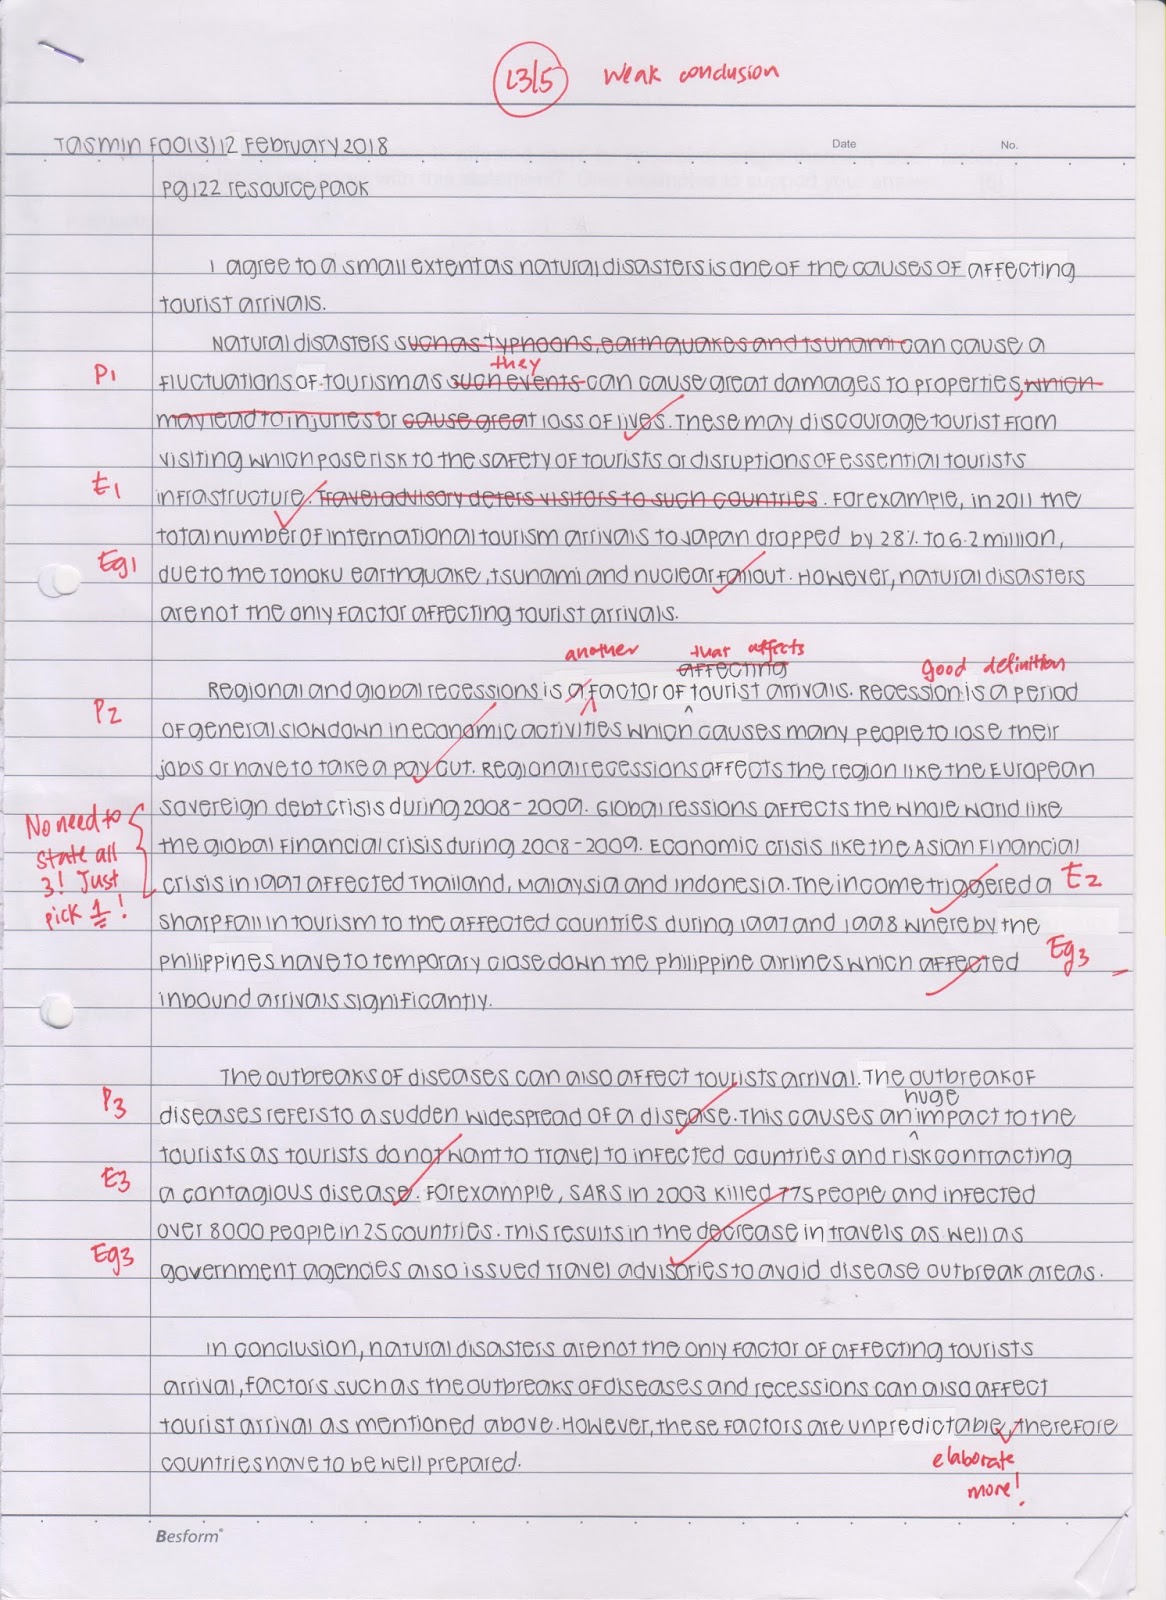 L3/5 Weak conclusion
Tasmin Foo (3) 12 February 2018
Date
No.
Pg 122 resource pack
I agree to a small extent as natural disasters is one of the causes of affecting
tourist arrivals.
Natural disasters such as typhoons, earthquakes and tsunami can cause a
they
P1
fluctuations of tourism as such events can cause great damages to properties, which
may lead to injuries or cause great loss of lives. These may discourage tourist from
visiting which pose risk to the safety of tourists or disruptions of essential tourists
E1
infrastructure. Travel advisory deters visitors to such countries. For example, in 2011 the
total number of international tourism arrivals to Japan dropped by 28% to 6.2 million,
Eg1
due to the Tohoku earthquake, tsunami and nuclear fallout. However, natural disasters
are not the only factor affecting tourist arrivals.
another that affects good definition
affecting
Regional and global recessions is a factor of tourist arrivals. Recession is a period
P2
of general slowdown in economic activities which causes many people to lose their
jobs or have to take a pay cut. Regional recessions affects the region like the European
sovereign debt crisis during 2008-2009. Global ressions affects the whole world like
No need to
state all
3! Just
pick 1!
the global financial crisis during 2008-2009. Economic crisis like the Asian Financial
crisis in 1997 affected Thailand, Malaysia and Indonesia. The income triggered a
E2
sharp fall in tourism to the affected countries during 1997 and 1998 where by the
Philippines have to temporary close down the Philippine airlines which affected
Eg3
inbound arrivals significantly.
The outbreaks of diseases can also affect tourists arrival. The outbreak of
huge
P3
diseases refers to a sudden widespread of a disease. This causes an impact to the
tourists as tourists do not want to travel to infected countries and risk contracting
E3
a contagious disease. For example, SARS in 2003 killed 775 people and infected
over 8000 people in 25 countries. This results in the decrease in travels as well as
Eg3
government agencies also issued travel advisories to avoid disease outbreak areas.
In conclusion, natural disasters are not the only factor of affecting tourists
arrival, factors such as the outbreaks of diseases and recessions can also affect
tourist arrival as mentioned above. However, these factors are unpredictable, therefore
countries have to be well prepared.
elaborate
more!
Besform